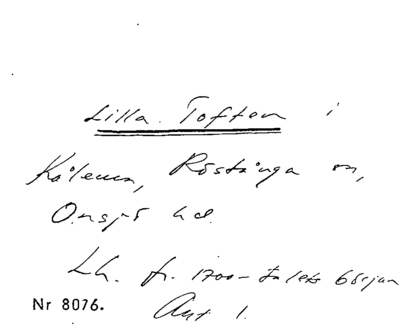 Lilla Toften i
Kölema, Röstånga sn,
Onsjö hd.
Lh. fr. 1700-talets början
Ant 1.
Nr 8076.